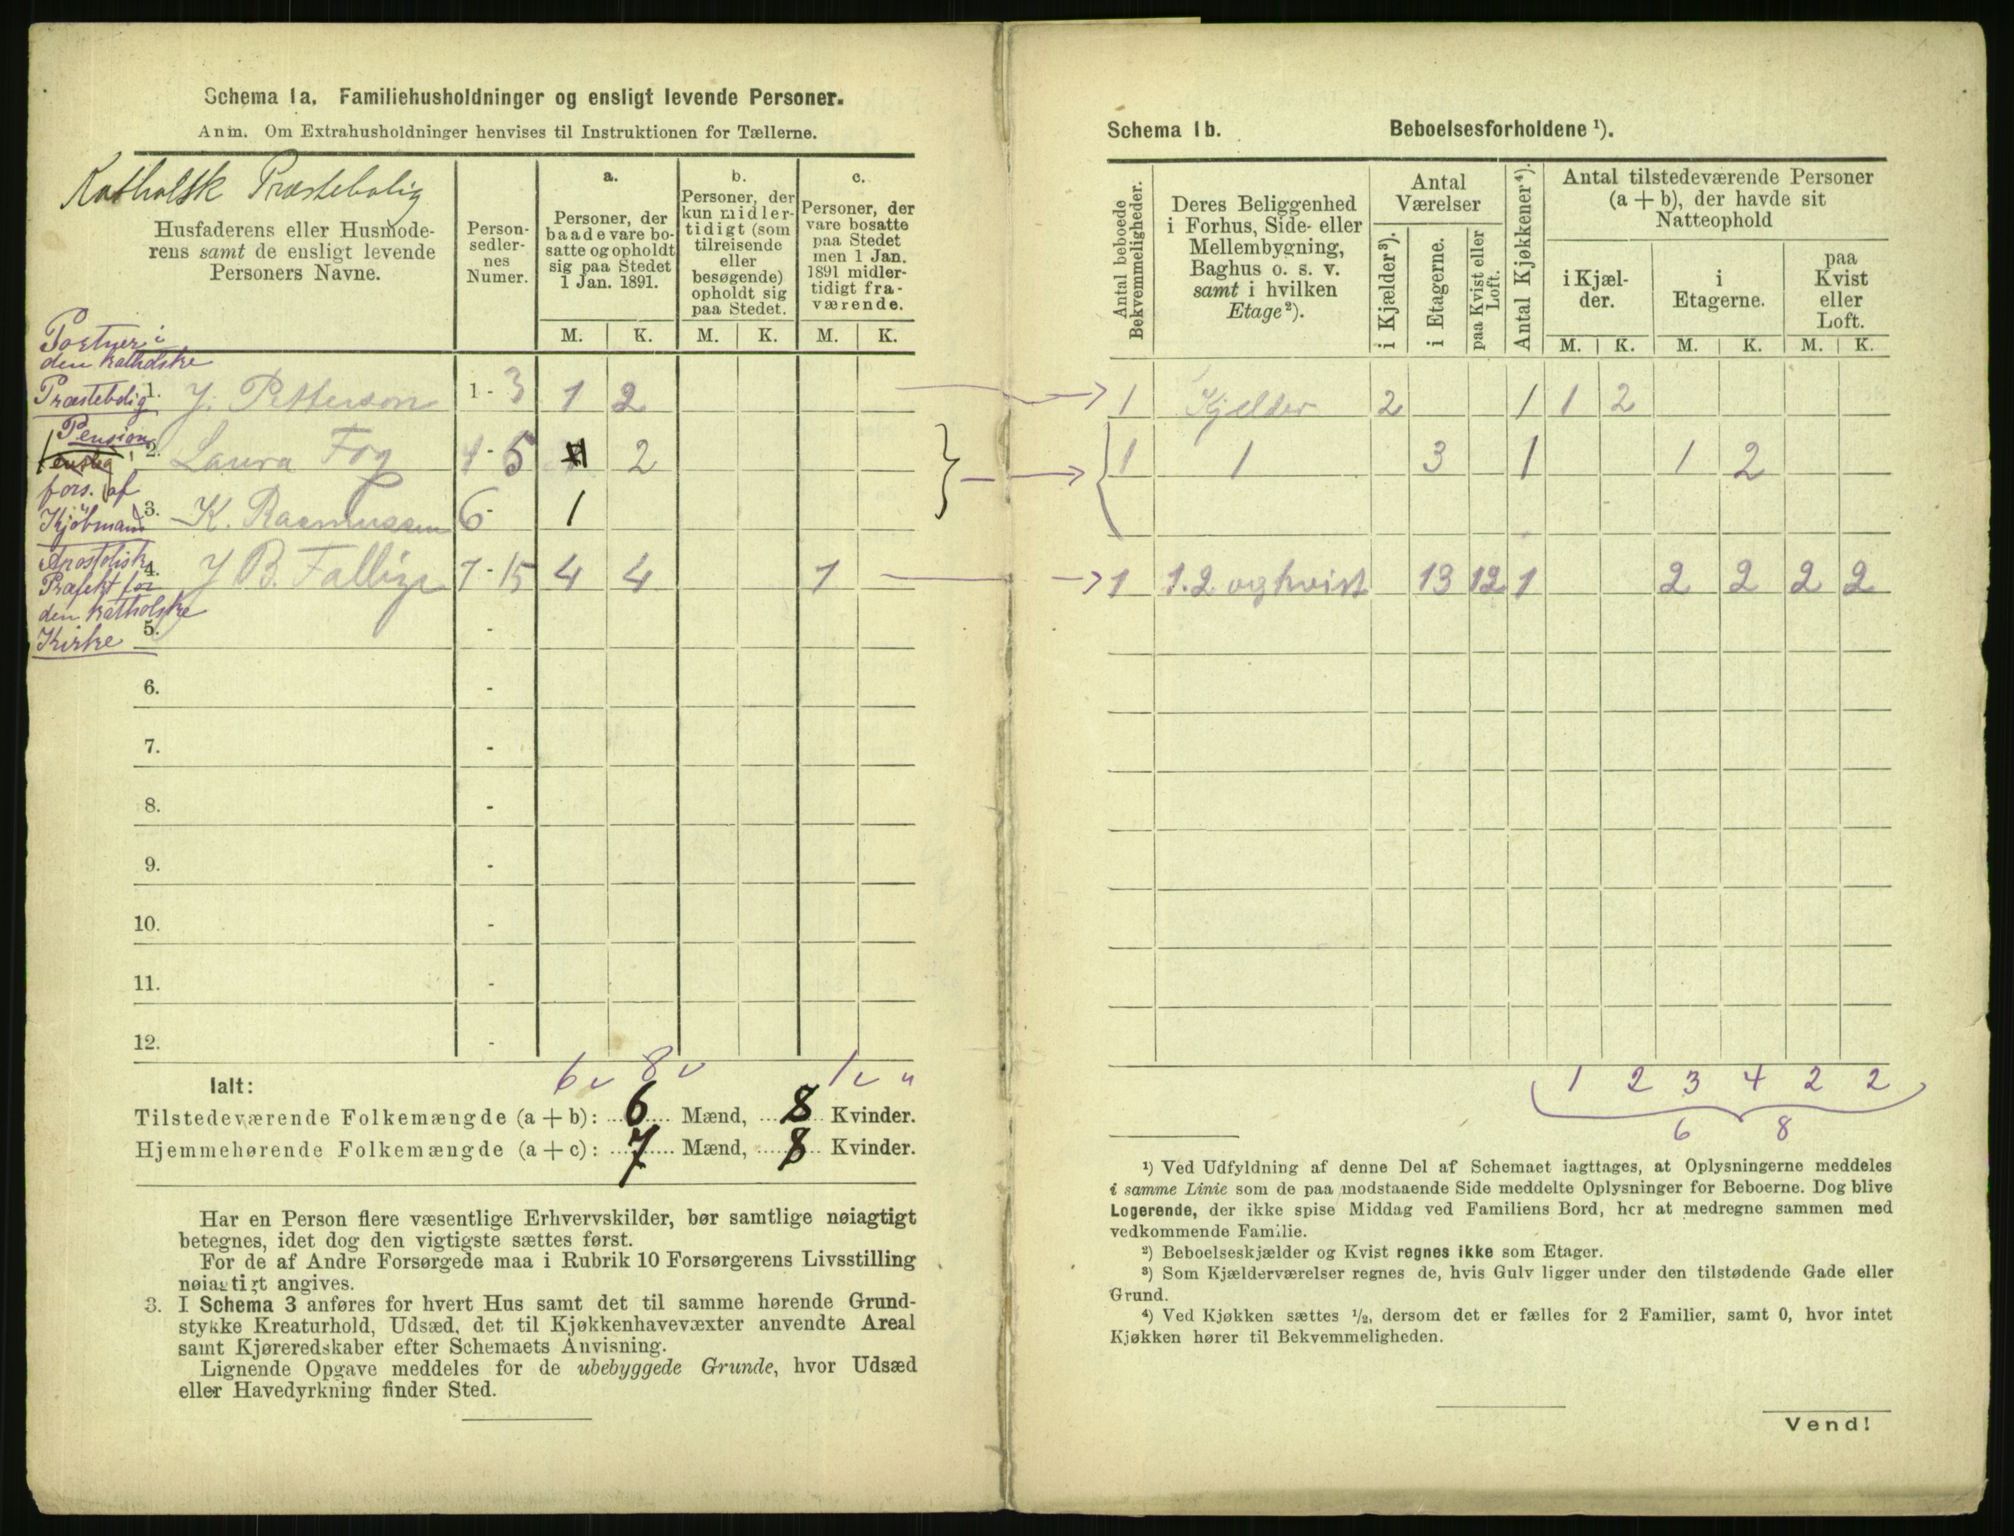 Schema 1a. Familiehusholdninger og ensligt levende Personer.
Anm. Om Extrahusholdninger henvises til Instruktionen for Tællerne.
Katholsk Præstebolig
Husfaderens eller Husmode-
rens samt de ensligt levende
Personers Navne.
Person-
sedler-
nes
Numer.
a.
Personer, der
baade vare bo-
satte og opholdt
sig paa Stedet
1 Jan. 1891.
b.
Personer, der
kun midler-
tidigt (som
tilreisende
eller
besøgende)
opholdt sig
paa Stedet.
c.
Personer, der
vare bosatte
paa Stedet
men 1 Jan.
1891 midler-
tidigt fra-
værende.
M. K. M. K. M. K.
Portner i
den katholske
Præstebolig
1. J. Petterson 1 - 3 1 2
Pension
enslig
fors. af
Kjøbmand
2. Laura Fog 4 - 5 2
3. K. Rasmussen 6 - 1
Apostolisk
Præfekt for
den katholske
Kirke
4. J B. Fallize 7 - 15 4 4 1
5. -
6. -
7. -
8. -
9. -
10. -
11. -
12. -
6 8 1 "
Ialt:
Tilstedeværende Folkemængde (a + b): 6 Mænd, 8 Kvinder.
Hjemmehørende Folkemængde (a + c): 7 Mænd, 8 Kvinder.
Har en Person flere væsentlige Erhvervskilder, bør samtlige nøiagtigt
betegnes, idet dog den vigtigste sættes først.
For de af Andre Forsørgede maa i Rubrik 10 Forsørgerens Livsstilling
nøiagtigt angives.
3. I Schema 3 anføres for hvert Hus samt det til samme hørende Grund-
stykke Kreaturhold, Udsæd, det til Kjøkkenhavevæxter anvendte Areal
samt Kjøreredskaber efter Schemaets Anvisning.
Lignende Opgave meddeles for de ubebyggede Grunde, hvor Udsæd
eller Havedyrkning finder Sted.
Schema 1b. Beboelsesforholdene ¹).
Antal beboede
Bekvemmeligheder.
Deres Beliggenhed
i Forhus, Side- eller
Mellembygning,
Baghus o. s. v.
samt i hvilken
Etage²).
Antal
Værelser
i Kjælder³).
i Etagerne.
paa Kvist eller
Loft.
Antal Kjøkkener⁴).
Antal tilstedeværende Personer
(a + b), der havde sit
Natteophold
i Kjæl-
der.
i
Etagerne.
paa
Kvist
eller
Loft.
M. K. M. K. M. K.
1 Kjelder 2 1 1 2
1 1 3 1 1 2
1 1.2 og kvist 13 12 1 2 2 2 2
1 2 3 4 2 2
6 8
¹) Ved Udfyldning af denne Del af Schemaet iagttages, at Oplysningerne meddeles
i samme Linie som de paa modstaaende Side meddelte Oplysninger for Beboerne. Dog blive
Logerende, der ikke spise Middag ved Familiens Bord, her at medregne sammen med
vedkommende Familie.
²) Beboelseskjælder og Kvist regnes ikke som Etager.
³) Som Kjælderværelser regnes de, hvis Gulv ligger under den tilstødende Gade eller
Grund.
⁴) Ved Kjøkken sættes ½, dersom det er fælles for 2 Familier, samt 0, hvor intet
Kjøkken hører til Bekvemmeligheden.
Vend!